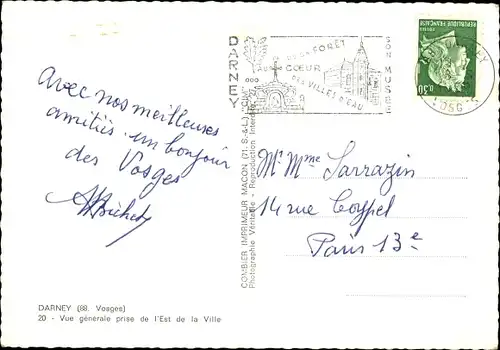 Avec nos meilleures
amitiés. un bonjour
des Vosges
DARNEY (88. Vosges)
20 - Vue générale prise de l'Est de la Ville
COMBIER IMPRIMEUR MACON (71. S.-&-L.) "CIM"
Photographie Véritable - Reproduction Interdite
DARNEY ...
SA FORÊT
AU CŒUR
DES VILLES D'EAU
SON MUSÉE
REPUBLIQUE FRANÇAISE
0,30
Mr Mme Sarrazin
14 rue Coypel
Paris 13e